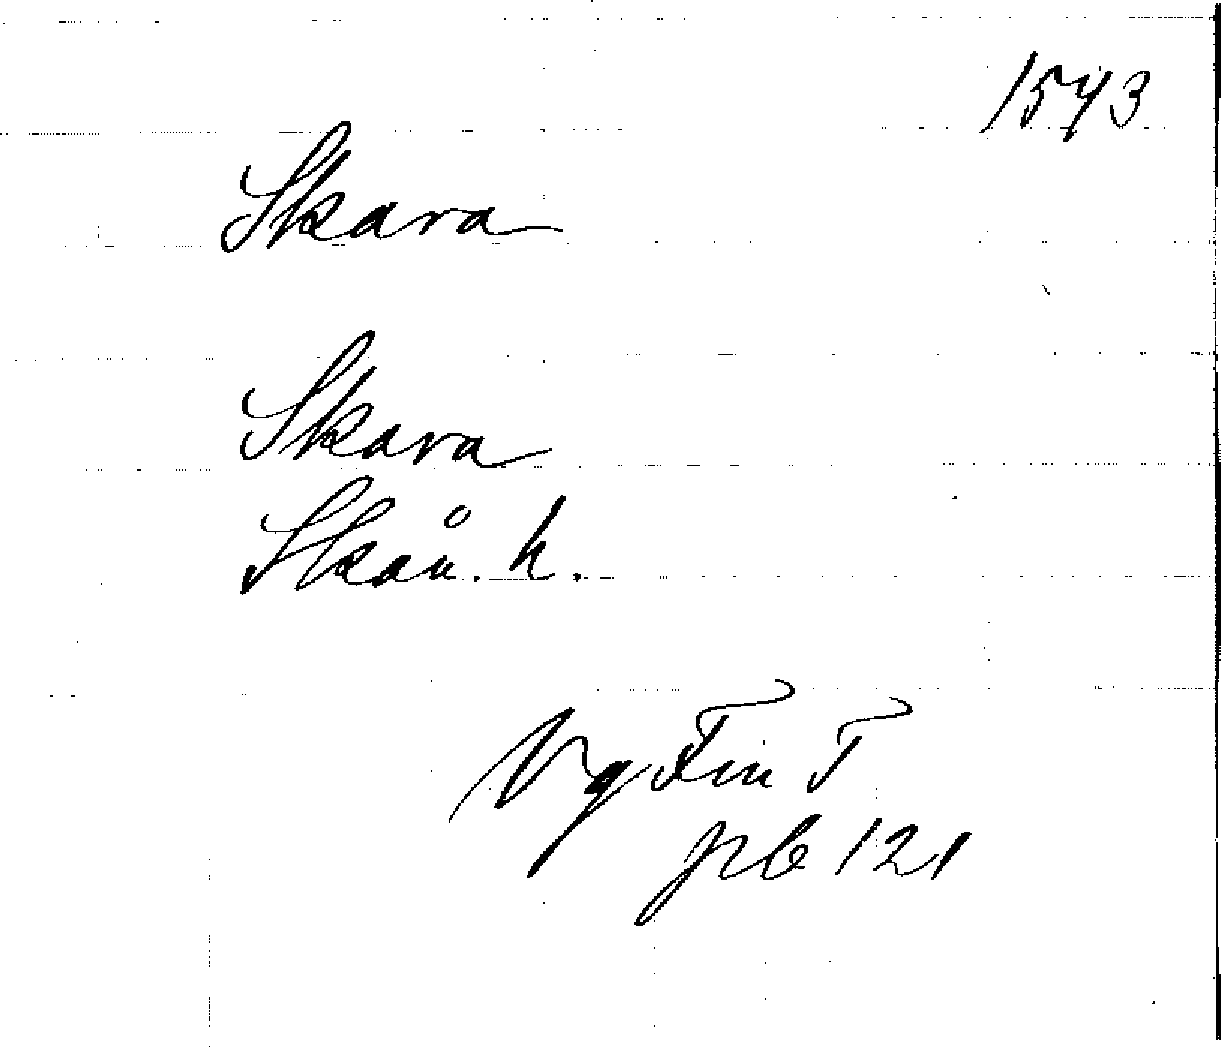 1543
Skara
Skara
Skån. h.
Vg Fin T
pb 121